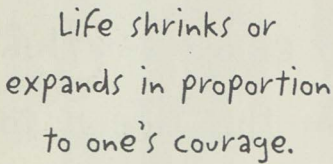 Life shrinks or
expands in proportion
to one's courage.